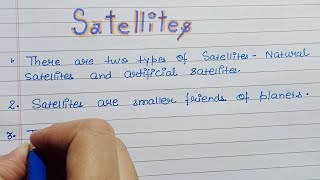 Satellites
1. There are two types of Satellites - Natural
satellites and artificial satellites.
2. Satellites are smaller friends of planets.
3. T